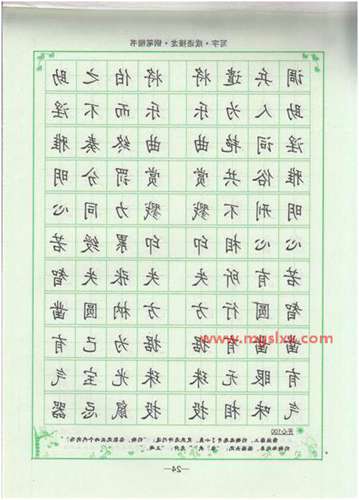 写字·成语接龙·钢笔楷书
调兵遣将 将伯之助
助人为乐 乐而不淫
淫词艳曲 曲终奏雅
雅俗共赏 赏罚分明
明刑不戮 戮力同心
心心相印 印累绶若
若有所失 失张失智
智圆行方 方枘圆凿
www.mgslxy.com
凿凿有据 据为己有
有眼无珠 珠光宝气
气味相投 投鼠忌器
开心100
—24—